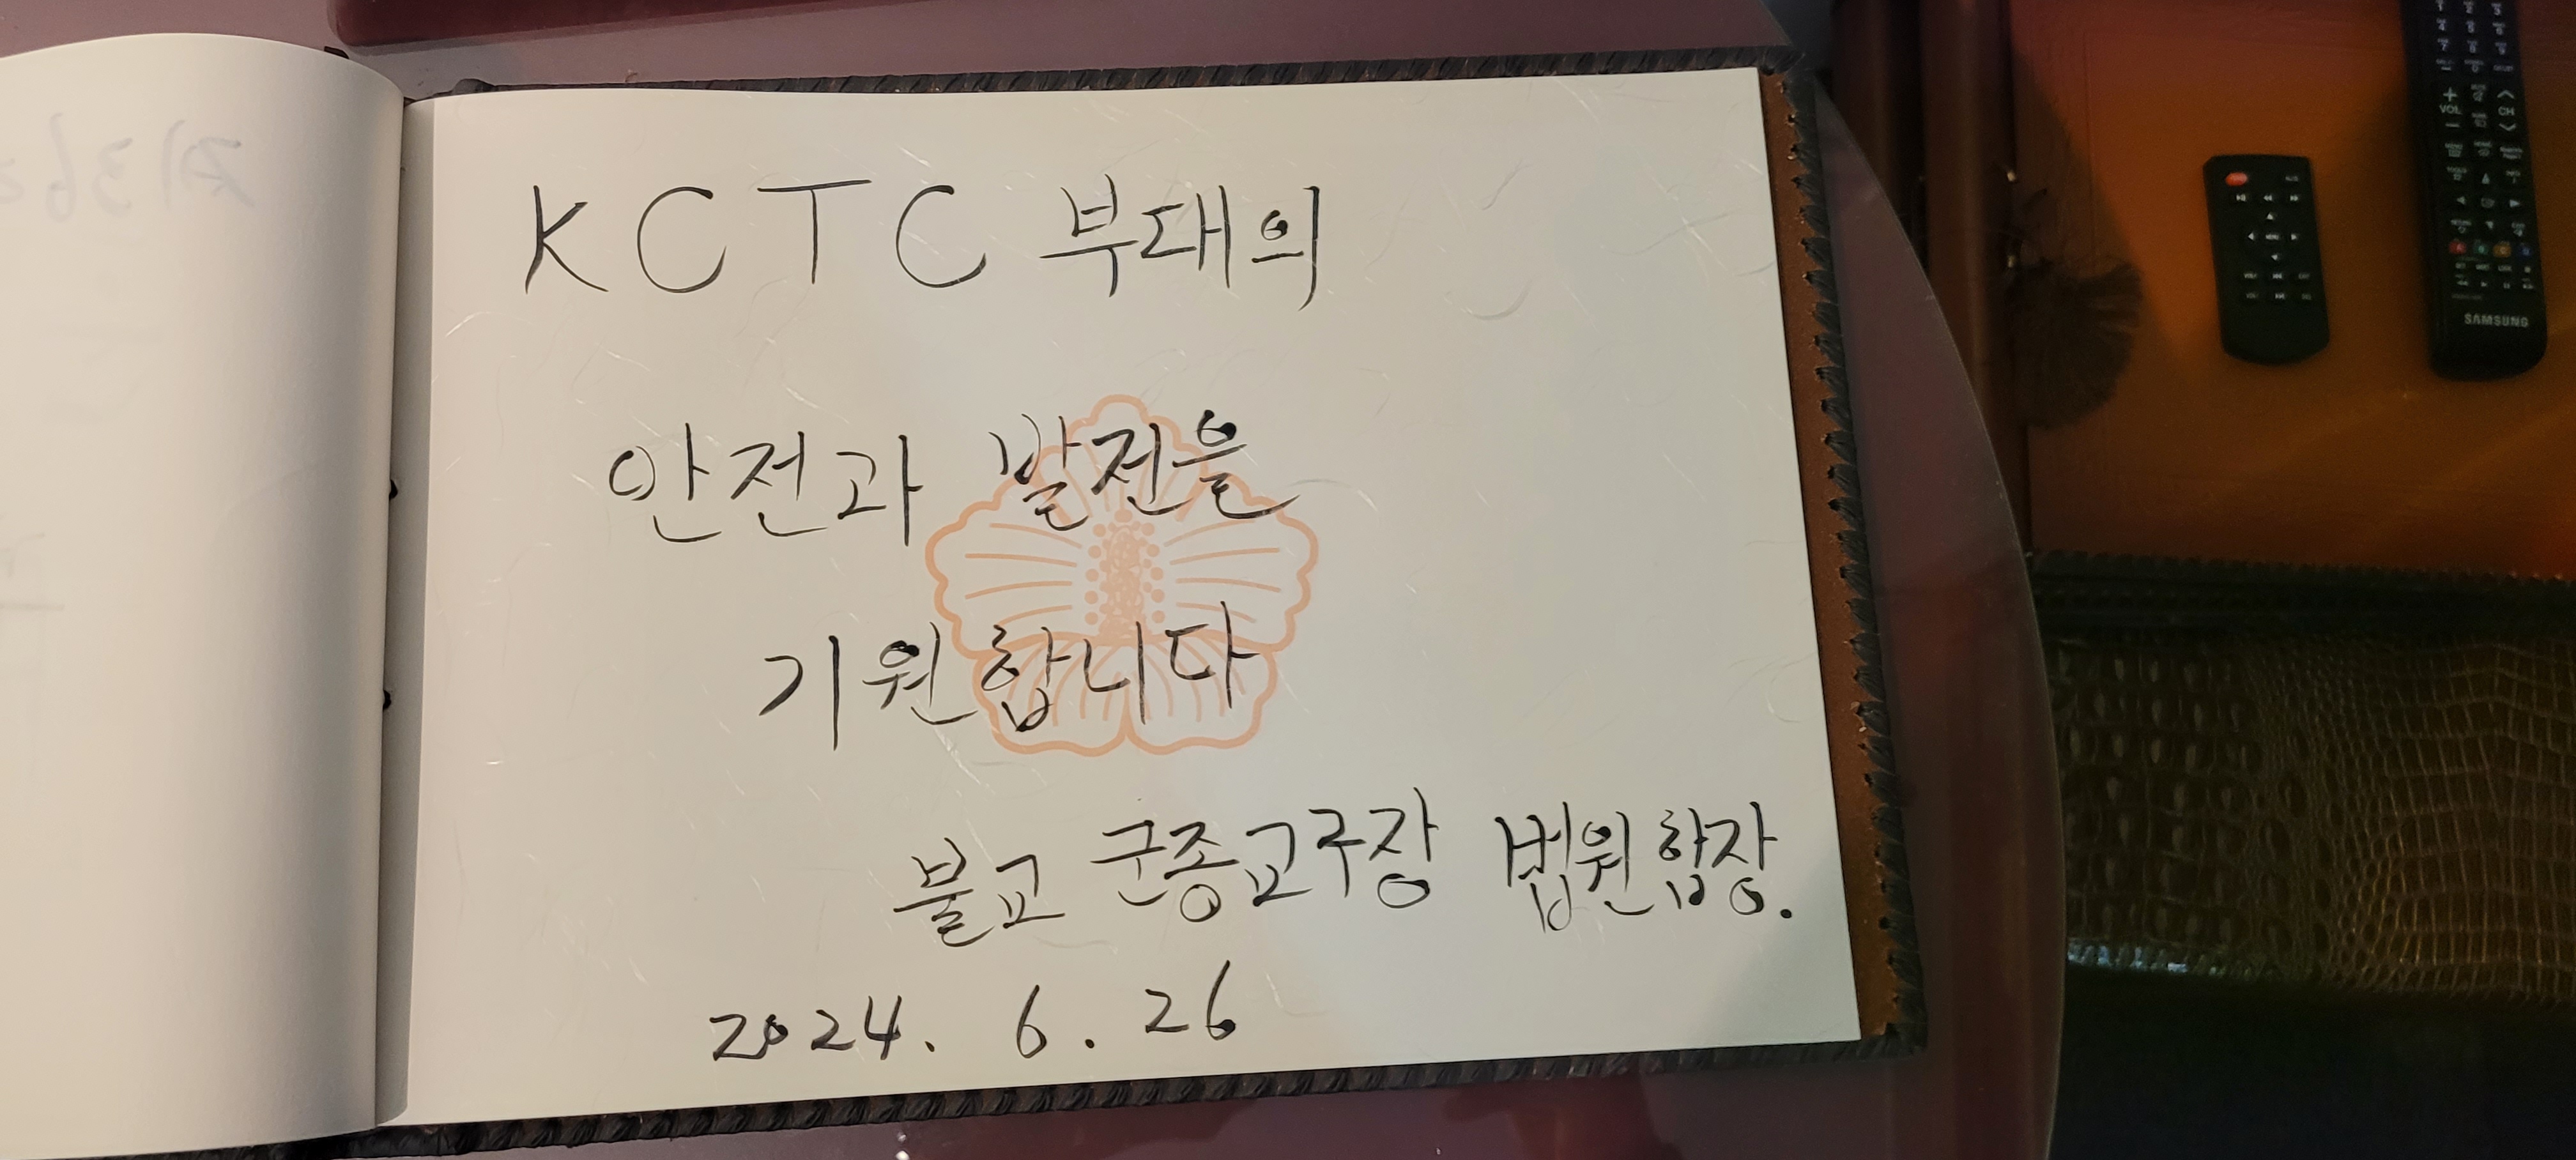 KCTC 부대의
안전과 발전을
기원합니다
불교 군종교구장 법원합장.
2024. 6. 26
VOL
CH
SAMSUNG